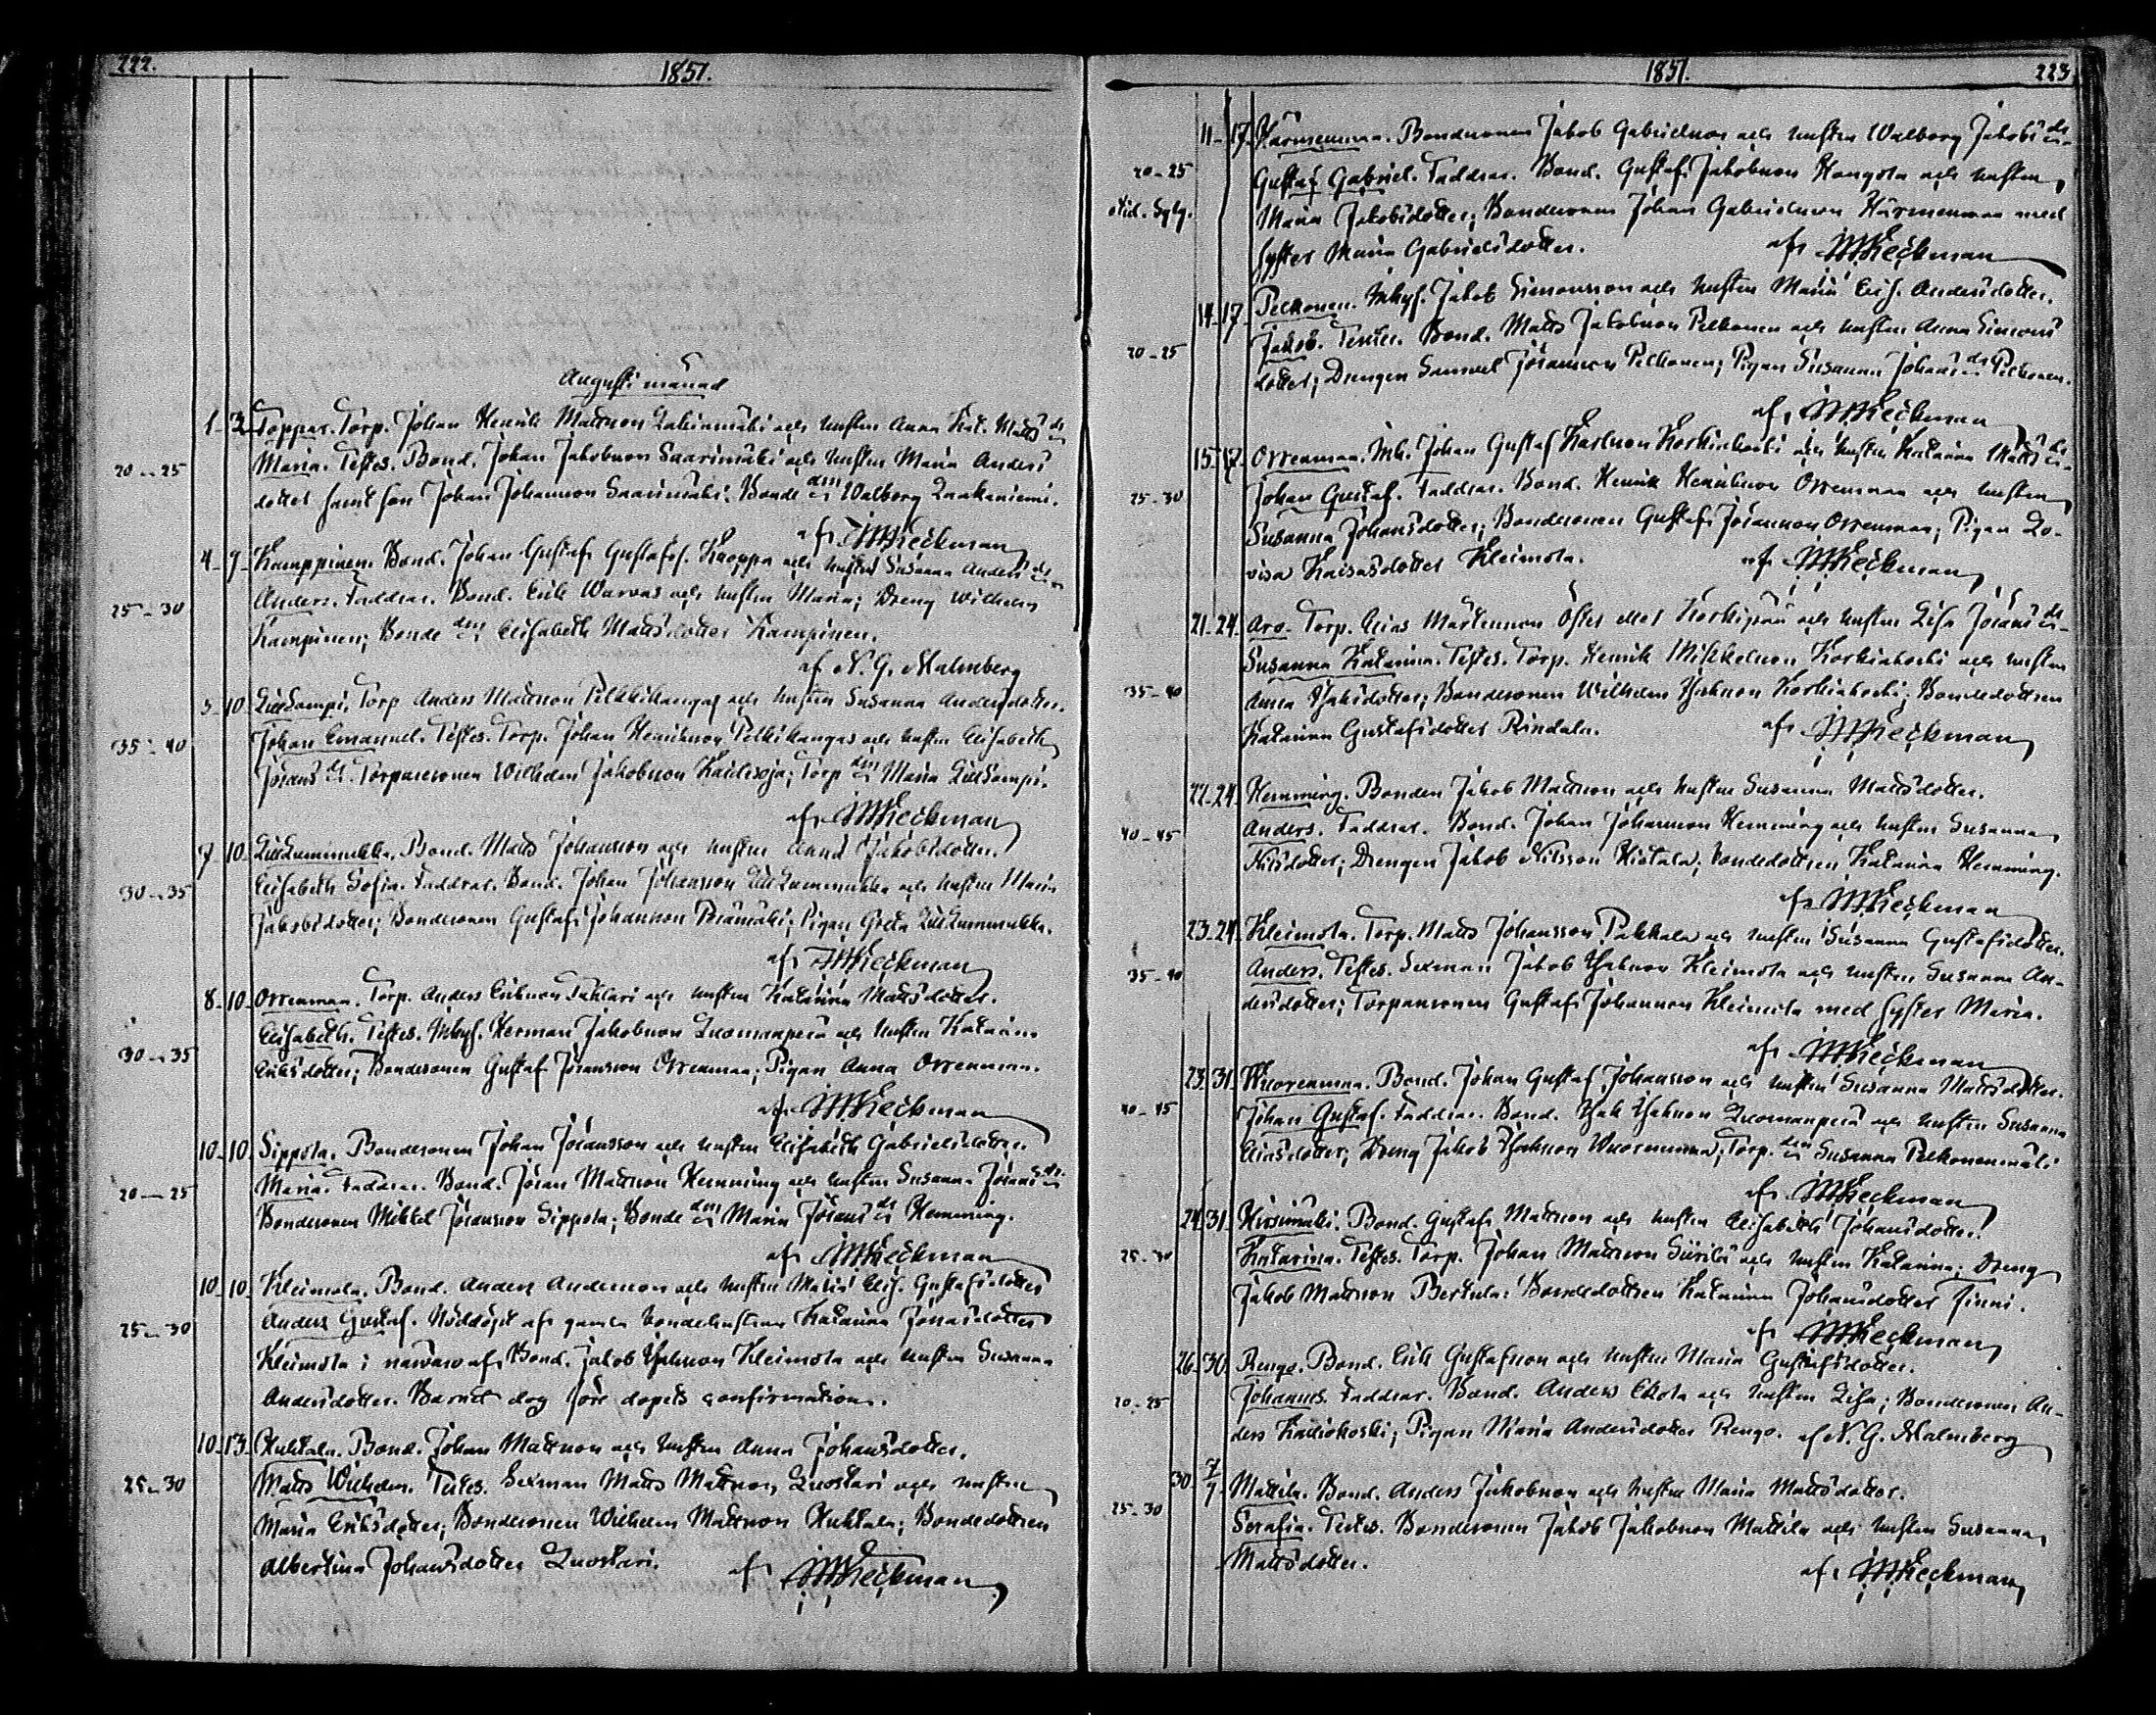 222.
1851.
Augusti månad
1. 3. Toppar. Torp. Johan Henrik Mattsson och hustru Anna Kat. Matts dr
20–25 Maria. Testes. Bond. Johan Jakobsson Saarimäki och hustru Maria Anders
dotter samt son Johan Johansson Saarimäki. Bonde dn Walborg Laakaniemi.
af JMHeikman
4. 9. Kamppinen. Bond. Johan Gustaf Gustafs. Knoppa och hustru Susanna Anders dr
25–30 Anders. Faddrar. Bond. Erik Warvas och hustru Maria; Dreng Wilhelm
Kampinen; Bonde dn Elisabeth Mattsdotter Kampinen.
af N. G. Malmberg
5. 10. Torp Anders Mattsson Pelkkikangas och hustru Susanna Andersdotter.
35–40 Johan Emanuel. Testes. Torp. Johan Henriksson Pelkikangas och hustru Elisabeth
Jörans dr. Torparesonen Wilhelm Jakobsson; Torp dn Maria
af JMHeikman
7. 10. Bond. Matts Johansson och hustru Anna Jakobsdotter.
30–35 Elisabeth Sofia. Faddrar. Bond. Johan Johansson och hustru Maria
Jakobsdotter; Bondesonen Gustaf Johansson; Pigan Greta
af JMHeikman
8. 10. Orrenmaa. Torp. Anders Eriksson och hustru Katarina Mattsdotter.
30–35 Elisabeth. Testes. Inhys. Herman Jakobsson Luomanperä och hustru Katarina
Eriksdotter; Bondesonen Gustaf Jöransson Orrenmaa; Pigan Anna Orrenmaa.
af JMHeikman
10. 10. Sippola. Bondesonen Johan Jöransson och hustru Elisabeth Gabrielsdotter.
20–25 Maria. Faddrar. Bond. Jöran Mattsson Hemming och hustru Susanna Jörans dr.
Bondesonen Mikkel Jöransson Sippola; Bonde dn Maria Jörans dr Hemming.
af JMHeikman
10. 10. Kleimola. Bond. Anders Andersson och hustru Maria Elis. Gustafsdotter
25–30 Anders Gustaf. Nöddöpt af gamla bondehustrun Katarina Jonasdotter
Kleimola i närvaro af Bond. Jakob Isaksson Kleimola och hustru Susanna
Andersdotter. Barnet dog före dopets confirmation.
10. 13. Huhtala. Bond. Johan Mattsson och hustru Anna Johansdotter.
25–30 Matts Wilhelm. Testes. Sexman Matts Mattsson Luostari och hustru
Maria Eriksdotter; Bondesonen Wilhelm Mattsson Huhtala; Bondedottren
Albertina Johansdotter Luostari.
af JMHeikman
1851.
223
11. 17. Härmenmaa. Bondsonen Jakob Gabrielsson och hustru Walborg Jakobs dr
20–25 Gustaf Gabriel. Faddrar. Bond. Gustaf Jakobsson Kangola och hustru
Maria Jakobsdotter; Bondesonen Johan Gabrielsson Härmenmaa med
syster Maria Gabrielsdotter. af JMHeikman
14. 17. Pelkonen. Inhys. Jakob Simonsson och hustru Maria Elis. Andersdotter.
20–25 Jakob. Testes. Bond. Matts Jakobsson Pelkonen och hustru Anna Simons
dotter; Drengen Samuel Jöransson Pelkonen; Pigan Susanna Johans dr Pelkonen.
af JMHeikman
15. 17. Orrenmaa. Inh. Johan Gustaf Karlsson Korkiakoski och hustru Katarina Matts dr
25–30 Johan Gustaf. Faddrar. Bond. Henrik Henriksson Orrenmaa och hustru
Susanna Johansdotter; Bondesonen Gustaf Jöransson Orrenmaa; Pigan Lo-
visa Kaisasdotter Kleimola. af JMHeikman
21. 24. Aro. Torp. Elias Mårtensson Öster eller och hustru Lisa Jörans dr
35–40 Susanna Katarina. Testes. Torp. Henrik Mikkelsson Korkiakoski och hustru
Anna Isaksdotter; Bondesonen Wilhelm Isaksson Korkiakoski; Bondedottren
Katarina Gustafsdotter Rindala. af JMHeikman
22. 24. Hemming. Bonden Jakob Mattsson och hustru Susanna Mattsdotter.
40–45 Anders. Faddrar. Bond. Johan Johansson Hemming och hustru Susanna
Nilsdotter; Drengen Jakob Nilsson Hietala; bondedottren Katarina Hemming.
af JMHeikman
23. 24. Kleimola. Torp. Matts Johansson Pakkala och hustru Susanna Gustafsdotter.
35–40 Anders. Testes. Sexman Jakob Isaksson Kleimola och hustru Susanna An-
dersdotter; Torparesonen Gustaf Johansson Kleimola med syster Maria.
af JMHeikman
23. 31. Wuorenmaa. Bond. Johan Gustaf Johansson och hustru Susanna Mattsdotter.
40–45 Johan Gustaf. Faddrar. Bond. Isak Isaksson Luomanperä och hustru Susanna
Eliasdotter; Dreng Jakob Isaksson Wuorenmaa; Torp. dn Susanna Pelkonenmäki
af JMHeikman
24. 31. Hirsimäki. Bond. Gustaf Mattsson och hustru Elisabeth Johansdotter.
25–30 Katarina. Testes. Torp. Johan Mattsson Siirilä och hustru Katarina; Dreng
Jakob Mattsson Perkula; Bondedottren Katarina Johansdotter Finni.
af JMHeikman
26. 30. Rengo. Bond. Erik Gustafsson och hustru Maria Gustafsdotter.
20–25 Johannes. Faddrar. Bond. Anders Ekola och hustru Lisa; Bondesonen An-
ders Kaakoski; Pigan Maria Andersdotter Rengo. af N. G. Malmberg
30. 7/9. Mattila. Bond. Anders Jakobsson och hustru Maria Mattsdotter.
25–30 Serafia. Testes. Bondesonen Jakob Jakobsson Mattila och hustru Susanna
Mattsdotter.
af JMHeikman